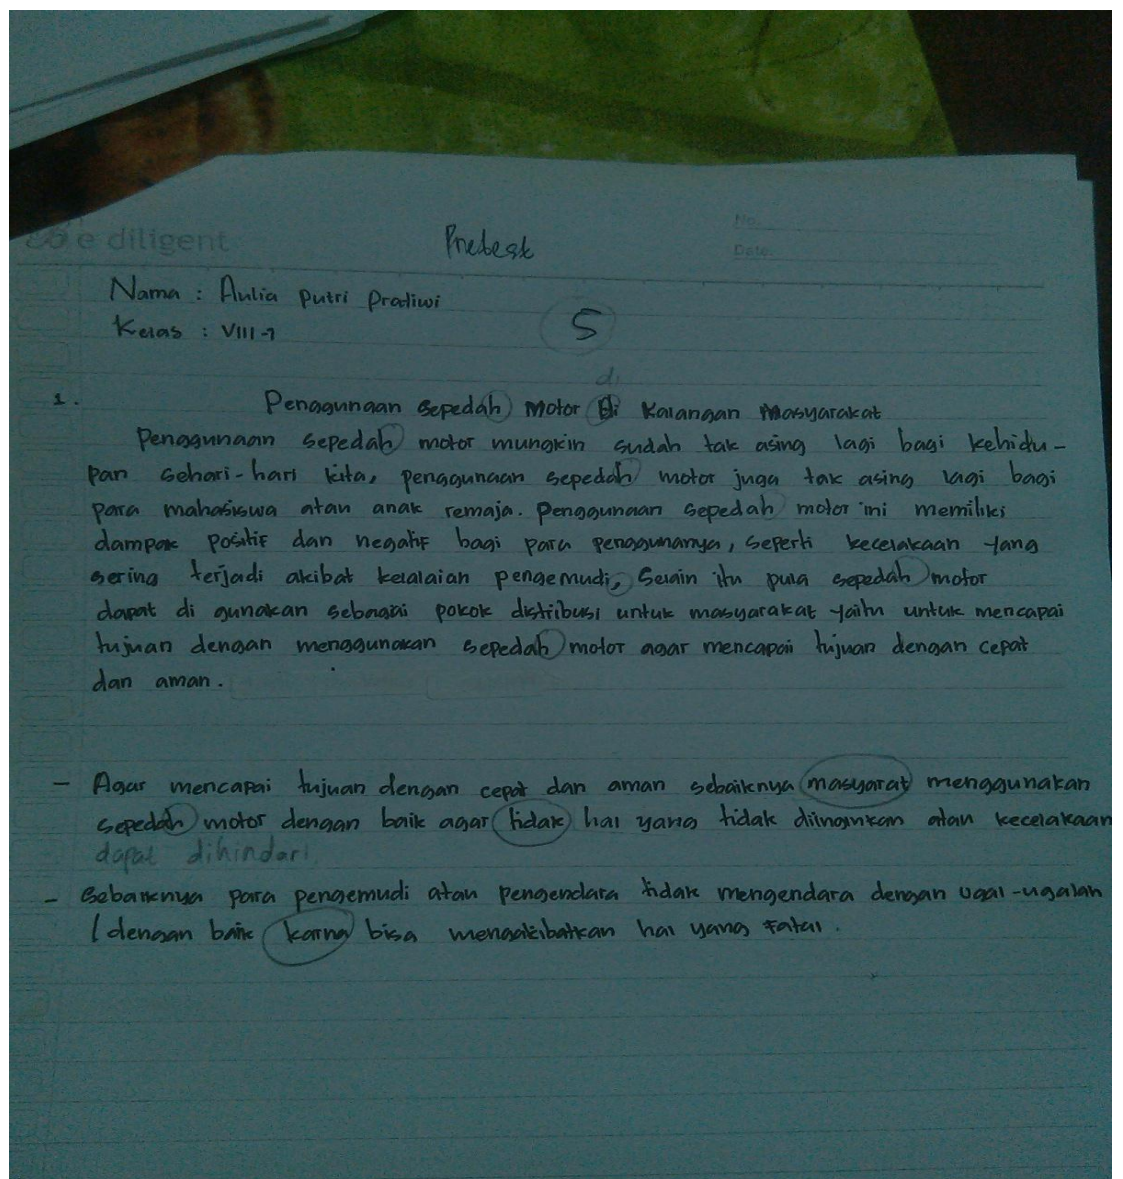 e diligent
Pretest
No.
Date.
Nama : Aulia Putri Pratiwi
Kelas : VIII-7
5
di
1. Penggunaan Sepedah Motor Di Kalangan Masyarakat
Penggunaan sepedah motor mungkin sudah tak asing lagi bagi kehidu-
pan sehari-hari kita, penggunaan sepedah motor juga tak asing lagi bagi
para mahasiswa atau anak remaja. Penggunaan sepedah motor ini memiliki
dampak positif dan negatif bagi para penggunanya, seperti kecelakaan yang
sering terjadi akibat kelalaian pengemudi, Selain itu pula sepedah motor
dapat di gunakan sebagai pokok distribusi untuk masyarakat yaitu untuk mencapai
tujuan dengan menggunakan sepedah motor agar mencapai tujuan dengan cepat
dan aman.
- Agar mencapai tujuan dengan cepat dan aman sebaiknya masyarat menggunakan
sepedah motor dengan baik agar tidak hal yang tidak diinginkan atau kecelakaan
dapat dihindari.
- Sebaiknya para pengemudi atau pengendara tidak mengendara dengan ugal-ugalan
/ dengan baik karna bisa mengakibatkan hal yang fatal.